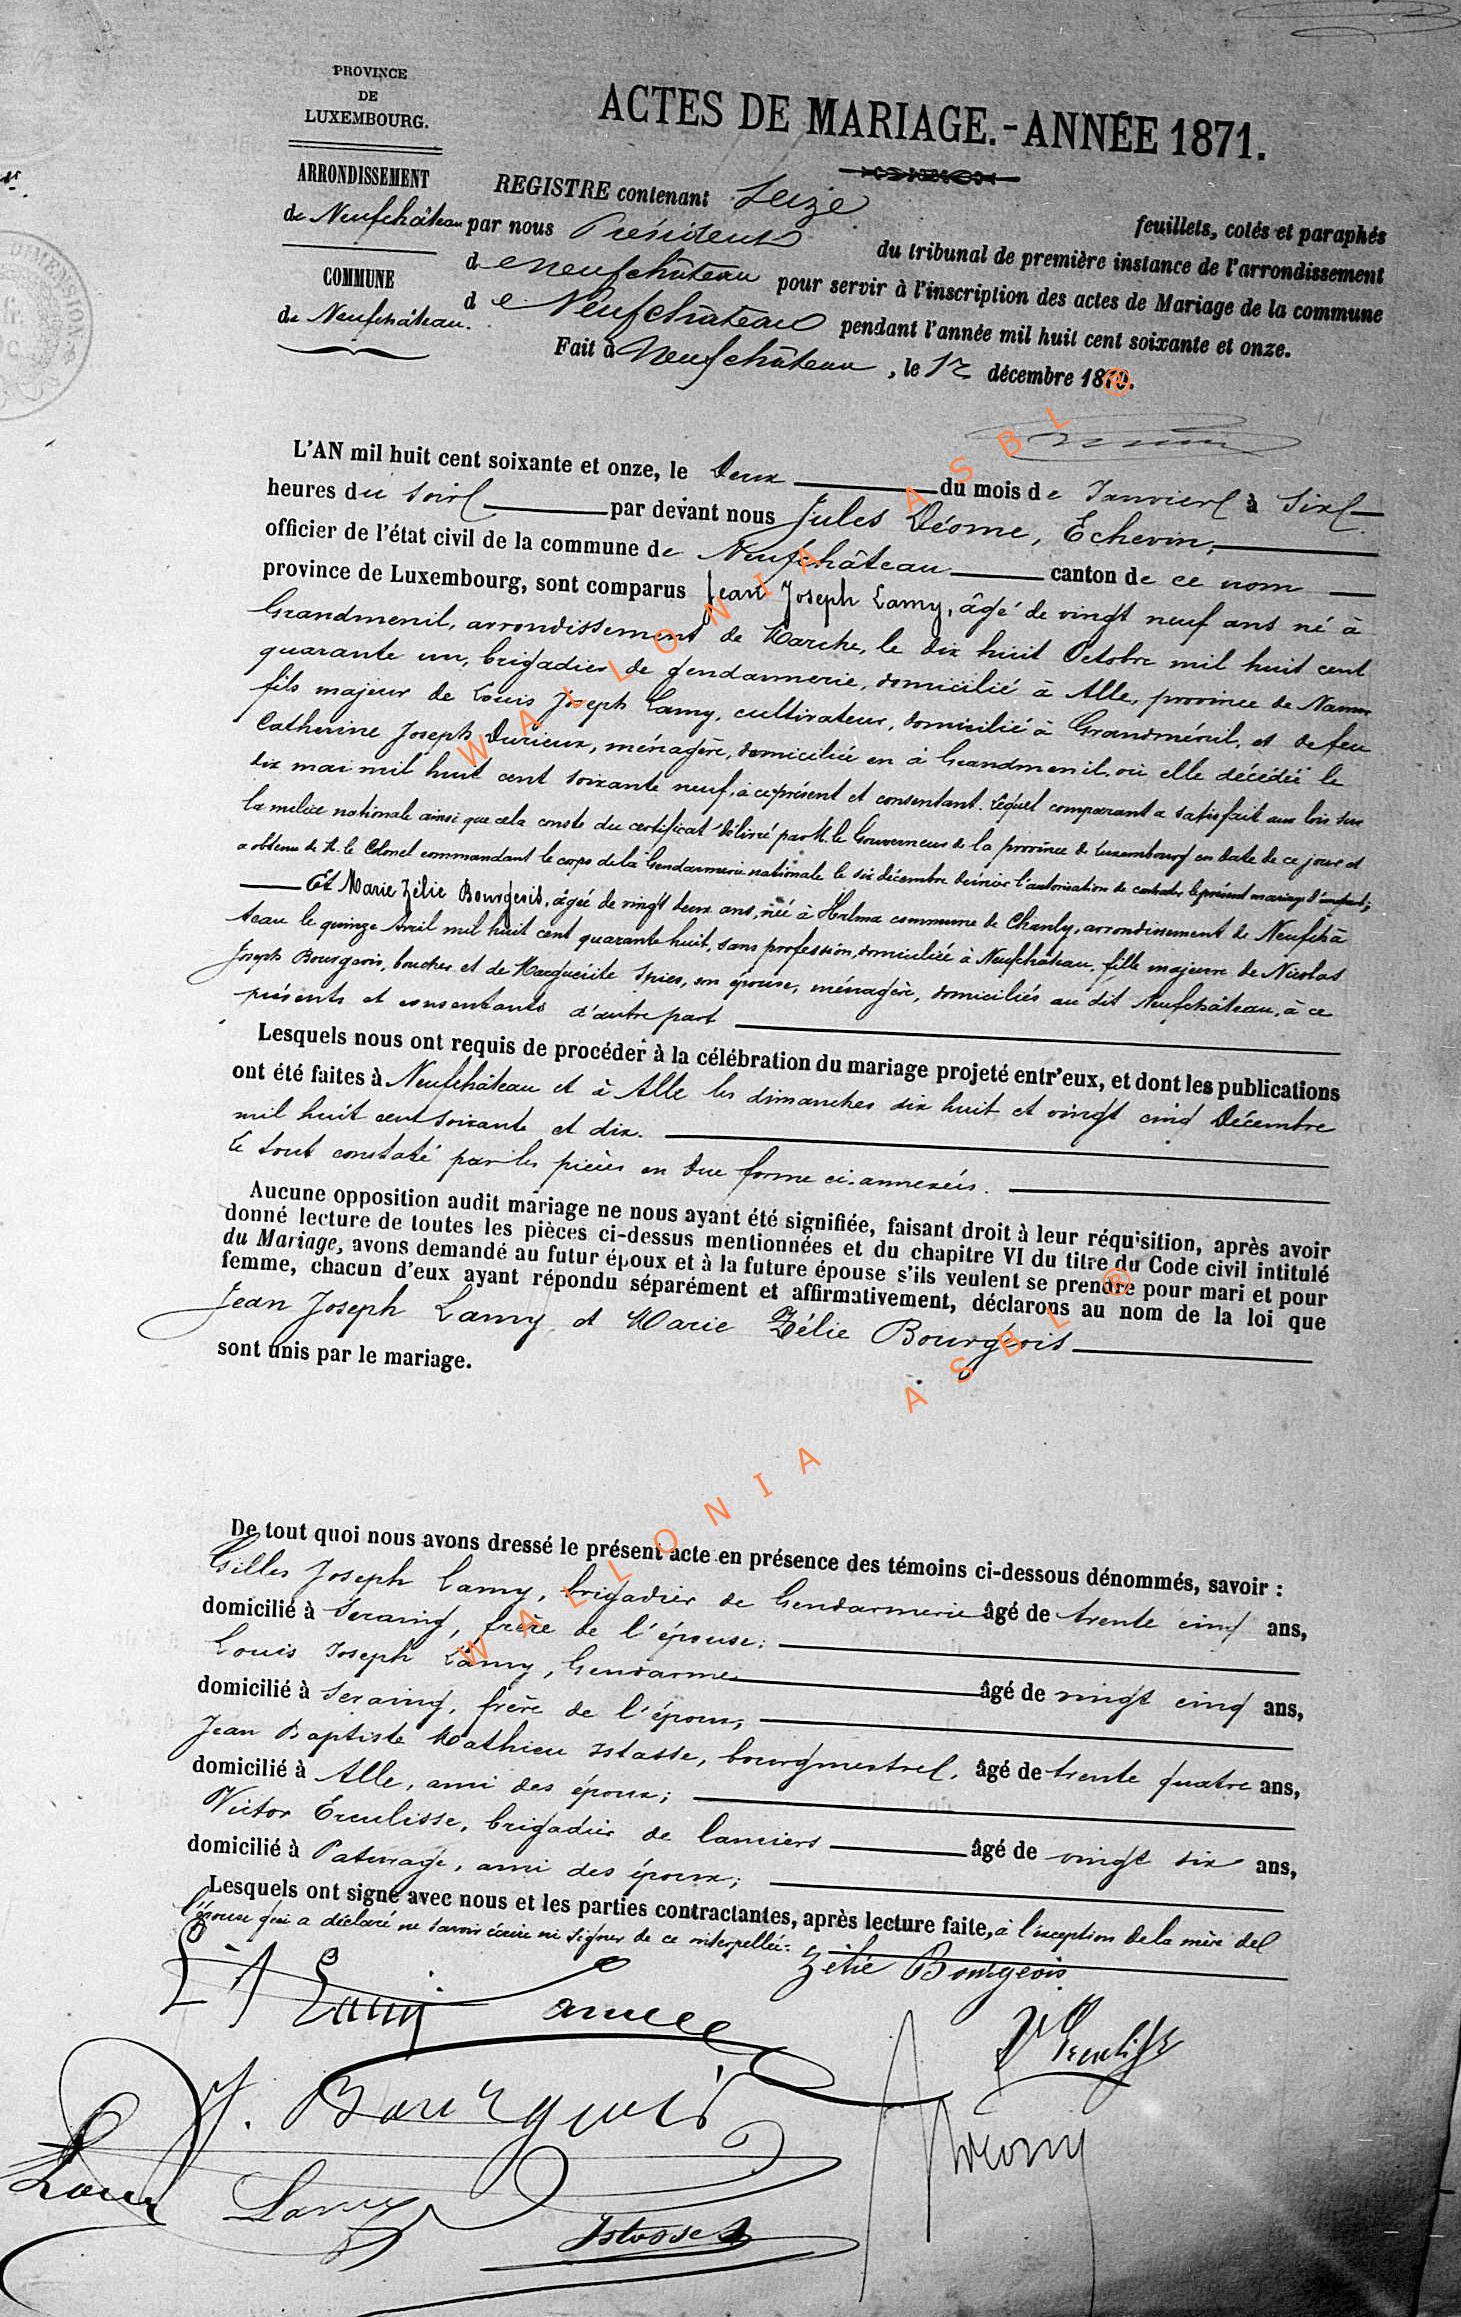 PROVINCE
DE
LUXEMBOURG.
ARRONDISSEMENT
de Neufchâteau
COMMUNE
de Neufchâteau.
ACTES DE MARIAGE.-ANNÉE 1871.
REGISTRE contenant Seize feuillets, cotés et paraphés
par nous Président du tribunal de première instance de l'arrondissement
de Neufchâteau pour servir à l'inscription des actes de Mariage de la commune
de Neufchâteau pendant l'année mil huit cent soixante et onze.
Fait à Neufchâteau, le 12 décembre 1870.
L'AN mil huit cent soixante et onze, le Deux du mois de Janvier à Six
heures du soir par devant nous Jules Déome, Echevin,
officier de l'état civil de la commune de Neufchâteau canton de ce nom
province de Luxembourg, sont comparus Jean Joseph Lamy, âgé de vingt neuf ans né à
Grandmenil, arrondissement de Marche, le dix huit Octobre mil huit cent
quarante un, brigadier de gendarmerie, domicilié à Alle, province de Namur
fils majeur de Louis Joseph Lamy, cultivateur, domicilié à Grandménil, et de feu
Catherine Joseph Durieux, ménagère, domiciliée en à Grandmenil, où elle décédée le
dix mai mil huit cent soixante neuf, à ce présent et consentant. Lequel comparant a satisfait aux lois sur
la milice nationale ainsi que cela conste du certificat délivré par M. le Gouverneur de la province de Luxembourg en date de ce jour et
a obtenu de M. le Colonel commandant le corps de la Gendarmerie nationale le six décembre dernier l'autorisation de contracter le présent mariage d'une part;
Et Marie Zélie Bourgeois, âgée de vingt deux ans, née à Halma commune de Chanly, arrondissement de Neufchâ
teau le quinze Avril mil huit cent quarante huit, sans profession, domiciliée à Neufchâteau, fille majeure de Nicolas
Joseph Bourgeois, boucher et de Marguerite Spies, son épouse, ménagère, domiciliés au dit Neufchâteau, à ce
présents et consentants d'autre part
Lesquels nous ont requis de procéder à la célébration du mariage projeté entr'eux, et dont les publications
ont été faites à Neufchâteau et à Alle les dimanches dix huit et vingt cinq Décembre
mil huit cent soixante et dix.
Le tout constaté par les pièces en due forme ci-annexées.
Aucune opposition audit mariage ne nous ayant été signifiée, faisant droit à leur réquisition, après avoir
donné lecture de toutes les pièces ci-dessus mentionnées et du chapitre VI du titre du Code civil intitulé
du Mariage, avons demandé au futur époux et à la future épouse s'ils veulent se prendre pour mari et pour
femme, chacun d'eux ayant répondu séparément et affirmativement, déclarons au nom de la loi que
Jean Joseph Lamy et Marie Zélie Bourgeois
sont unis par le mariage.
De tout quoi nous avons dressé le présent acte en présence des témoins ci-dessous dénommés, savoir :
Gilles Joseph Lamy, brigadier de Gendarmerie âgé de trente cinq ans,
domicilié à Seraing, frère de l'épouse;
Louis Joseph Lamy, Gendarme âgé de vingt cinq ans,
domicilié à Seraing, frère de l'époux;
Jean Baptiste Mathieu Istasse, bourgmestre, âgé de trente quatre ans,
domicilié à Alle, ami des époux;
Victor Ereulisse, brigadier de lanciers âgé de vingt six ans,
domicilié à Paturage, ami des époux;
Lesquels ont signé avec nous et les parties contractantes, après lecture faite, à l'exception de la mère de
l'épouse qui a déclaré ne savoir écrire ni signer de ce interpellée.
Zélie Bourgeois
Lamy
J. Bourgeois
Lamy
Istasse
WALLONIA ASBL ®
WALLONIA ASBL ®